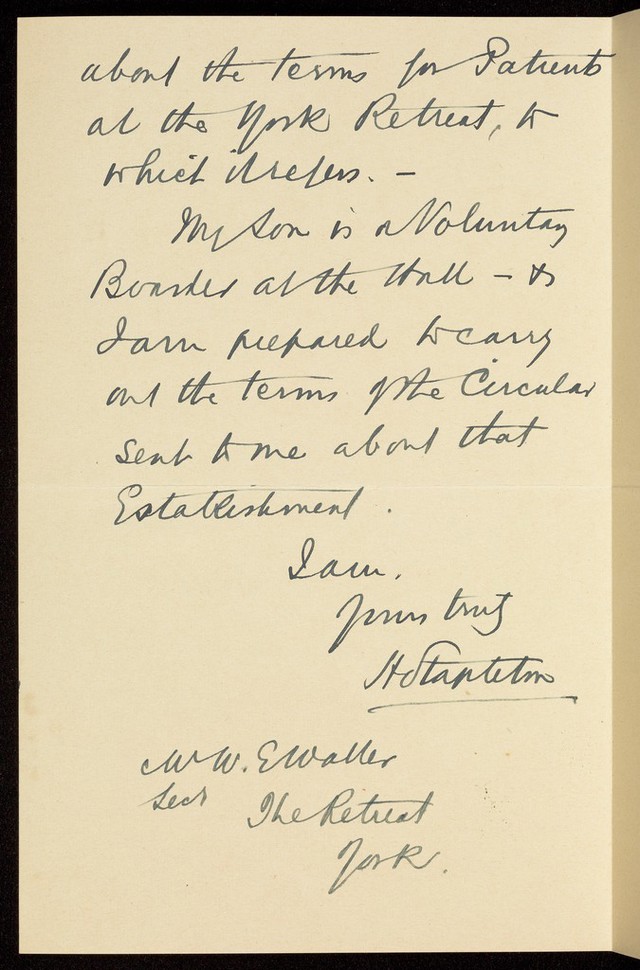 about the terms for Patients
at the York Retreat, to
which it refers. –
My Son is a Voluntary
Boarder at the Hall – &
I am prepared to carry
out the terms of the Circular
sent to me about that
Establishment.
I am.
yours truly
H Stapleton
Mr W. E Waller
Secy The Retreat
York.